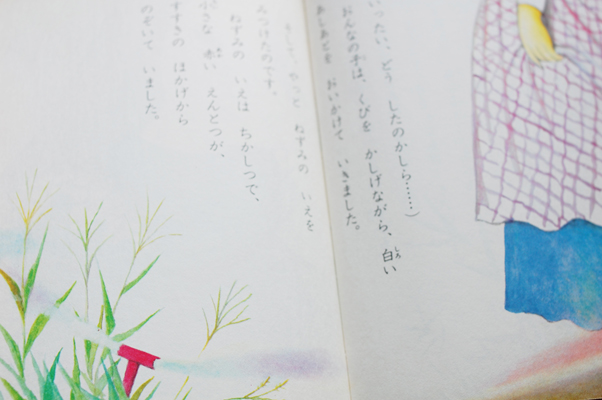 いったい、どう したのかしら……）
おんなの子は、くびを かしげながら、白い
あしあとを おいかけて いきました。
そして、やっと ねずみの いえを
みつけたのです。
ねずみの いえは ちかしつで、
小さな 赤い えんとつが、
すすきの ほかげから
のぞいて いました。